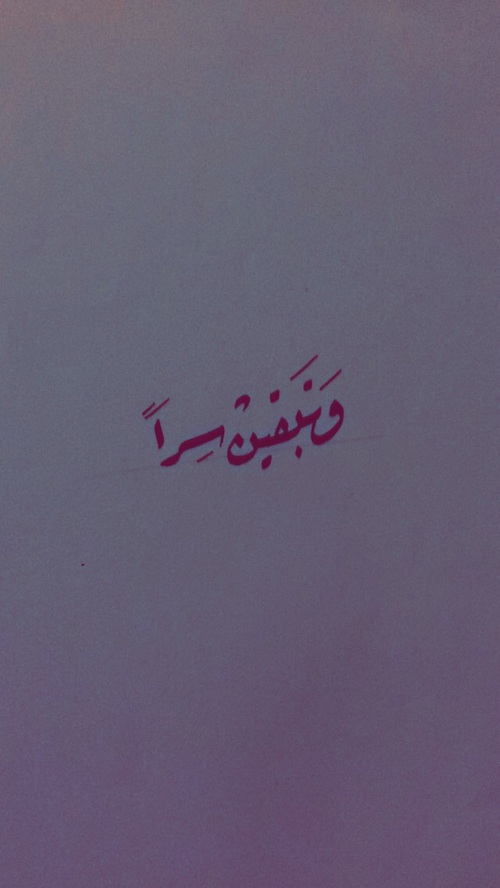 وَتَبقينَ سِراً